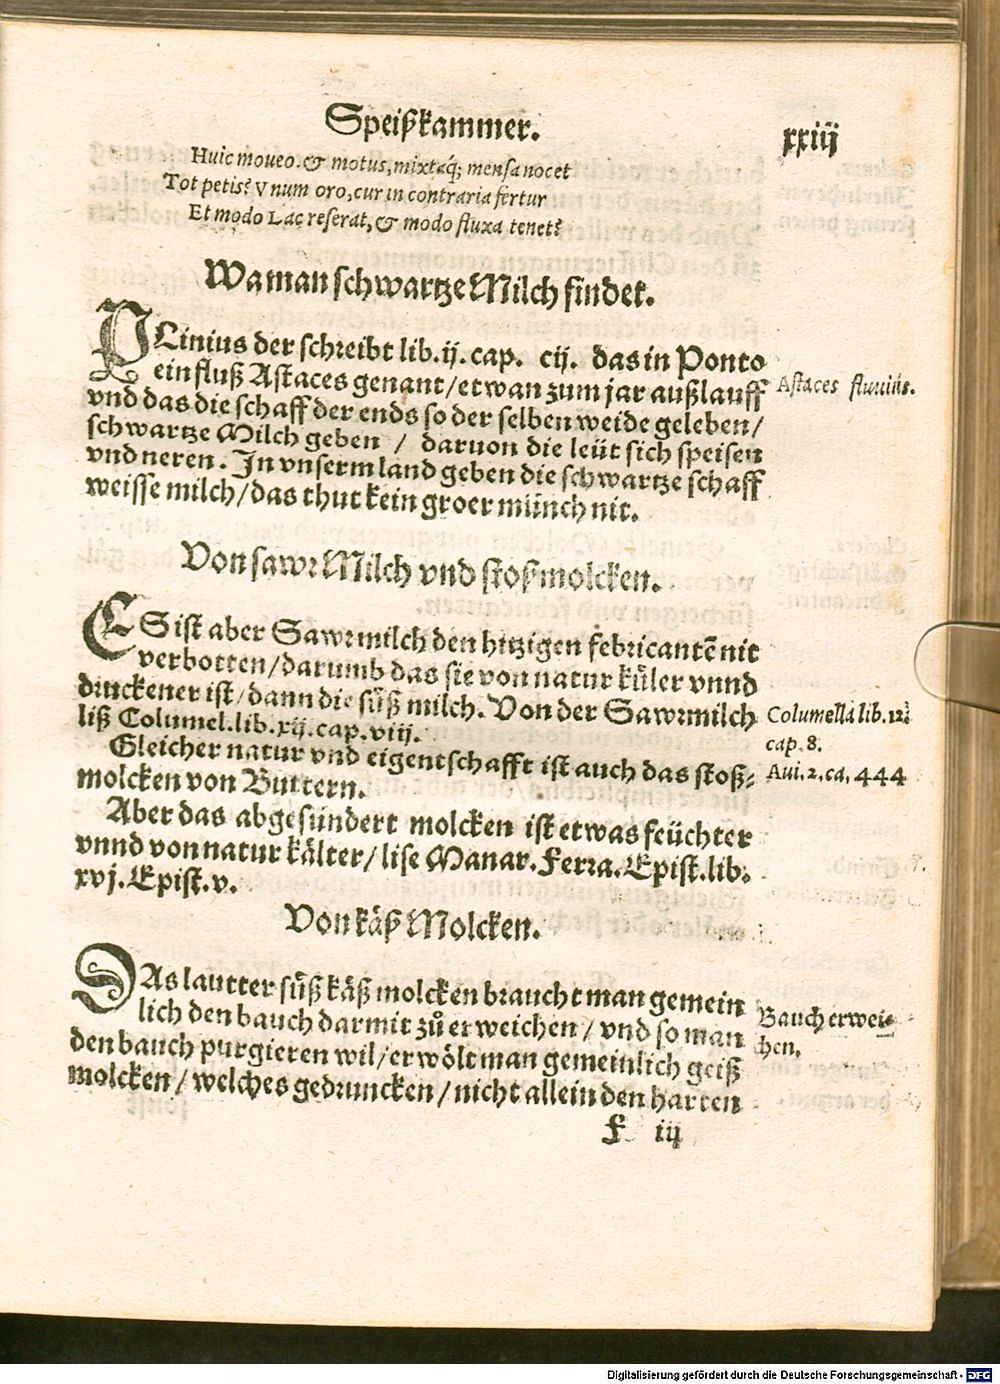 Speißkammer.
xxiij
Huic moveo. & motus, mixtaq́; mensa nocet
Tot petis? Vnum oro, cur in contraria fertur
Et modo Lac reserat, & modo fluxa tenet?
Wa man schwartze Milch findet.
PLinius der schreibt lib. ij. cap. cij. das in Ponto
ein fluß Astaces genant / etwan zum jar außlauff
Astaces fluuius.
vnd das die schaff der ends so der selben weide geleben /
schwartze Milch geben / daruon die leüt sich speisen
vnd neren. In vnserm land geben die schwartze schaff
weisse milch / das thut kein groer münch nit.
Von sawr Milch vnd stoßmolcken.
ES ist aber Sawrmilch den hitzigen febricantẽ nit
verbotten / darumb das sie von natur küler vnnd
druckener ist / dann die süß milch. Von der Sawrmilch
Columella lib. 12.
liß Columel. lib. xij. cap. viij.
cap. 8.
Gleicher natur vnd eigentschafft ist auch das stoß⸗
Aui. 2. ca. 444
molcken von Buttern.
Aber das abgesündert molcken ist etwas feüchter
vnnd von natur kälter / lise Manar. Ferra. Epist. lib.
xvj. Epist. v.
Von käß Molcken.
DAs lautter süß käß molcken braucht man gemein
lich den bauch darmit zů erweichen / vnd so man
Bauch erwei⸗
den bauch purgieren wil / erwölt man gemeinlich geiß
chen.
molcken / welches gedruncken / nicht allein den harten
F iij
Digitalisierung gefördert durch die Deutsche Forschungsgemeinschaft - DFG